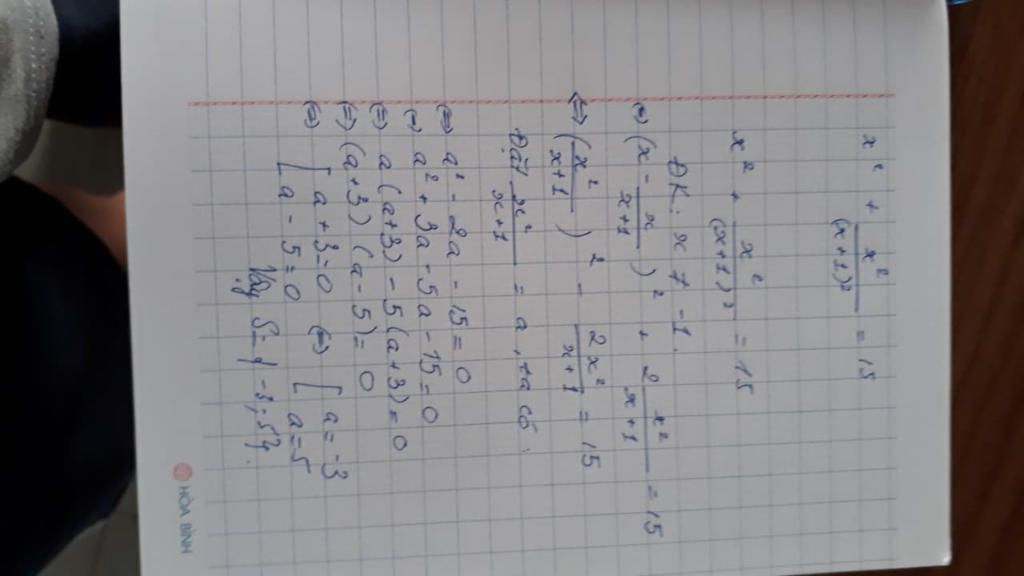 x² + x²/(x+1)² = 15
x² + x²/(x+1)² = 15
ĐK: x ≠ -1.
⇔ (x - x/(x+1))² + 2 x²/(x+1) = 15
⇔ (x²/(x+1))² - 2x²/(x+1) = 15
Đặt x²/(x+1) = a, ta có:
⇔ a² - 2a - 15 = 0
⇔ a² + 3a - 5a - 15 = 0
⇔ a(a+3) - 5(a+3) = 0
⇔ (a+3)(a-5) = 0
⇔ [ a+3=0 ⇔ [ a=-3
[ a-5=0 [ a=5
Vậy S={-3;5}.
HÒA BÌNH